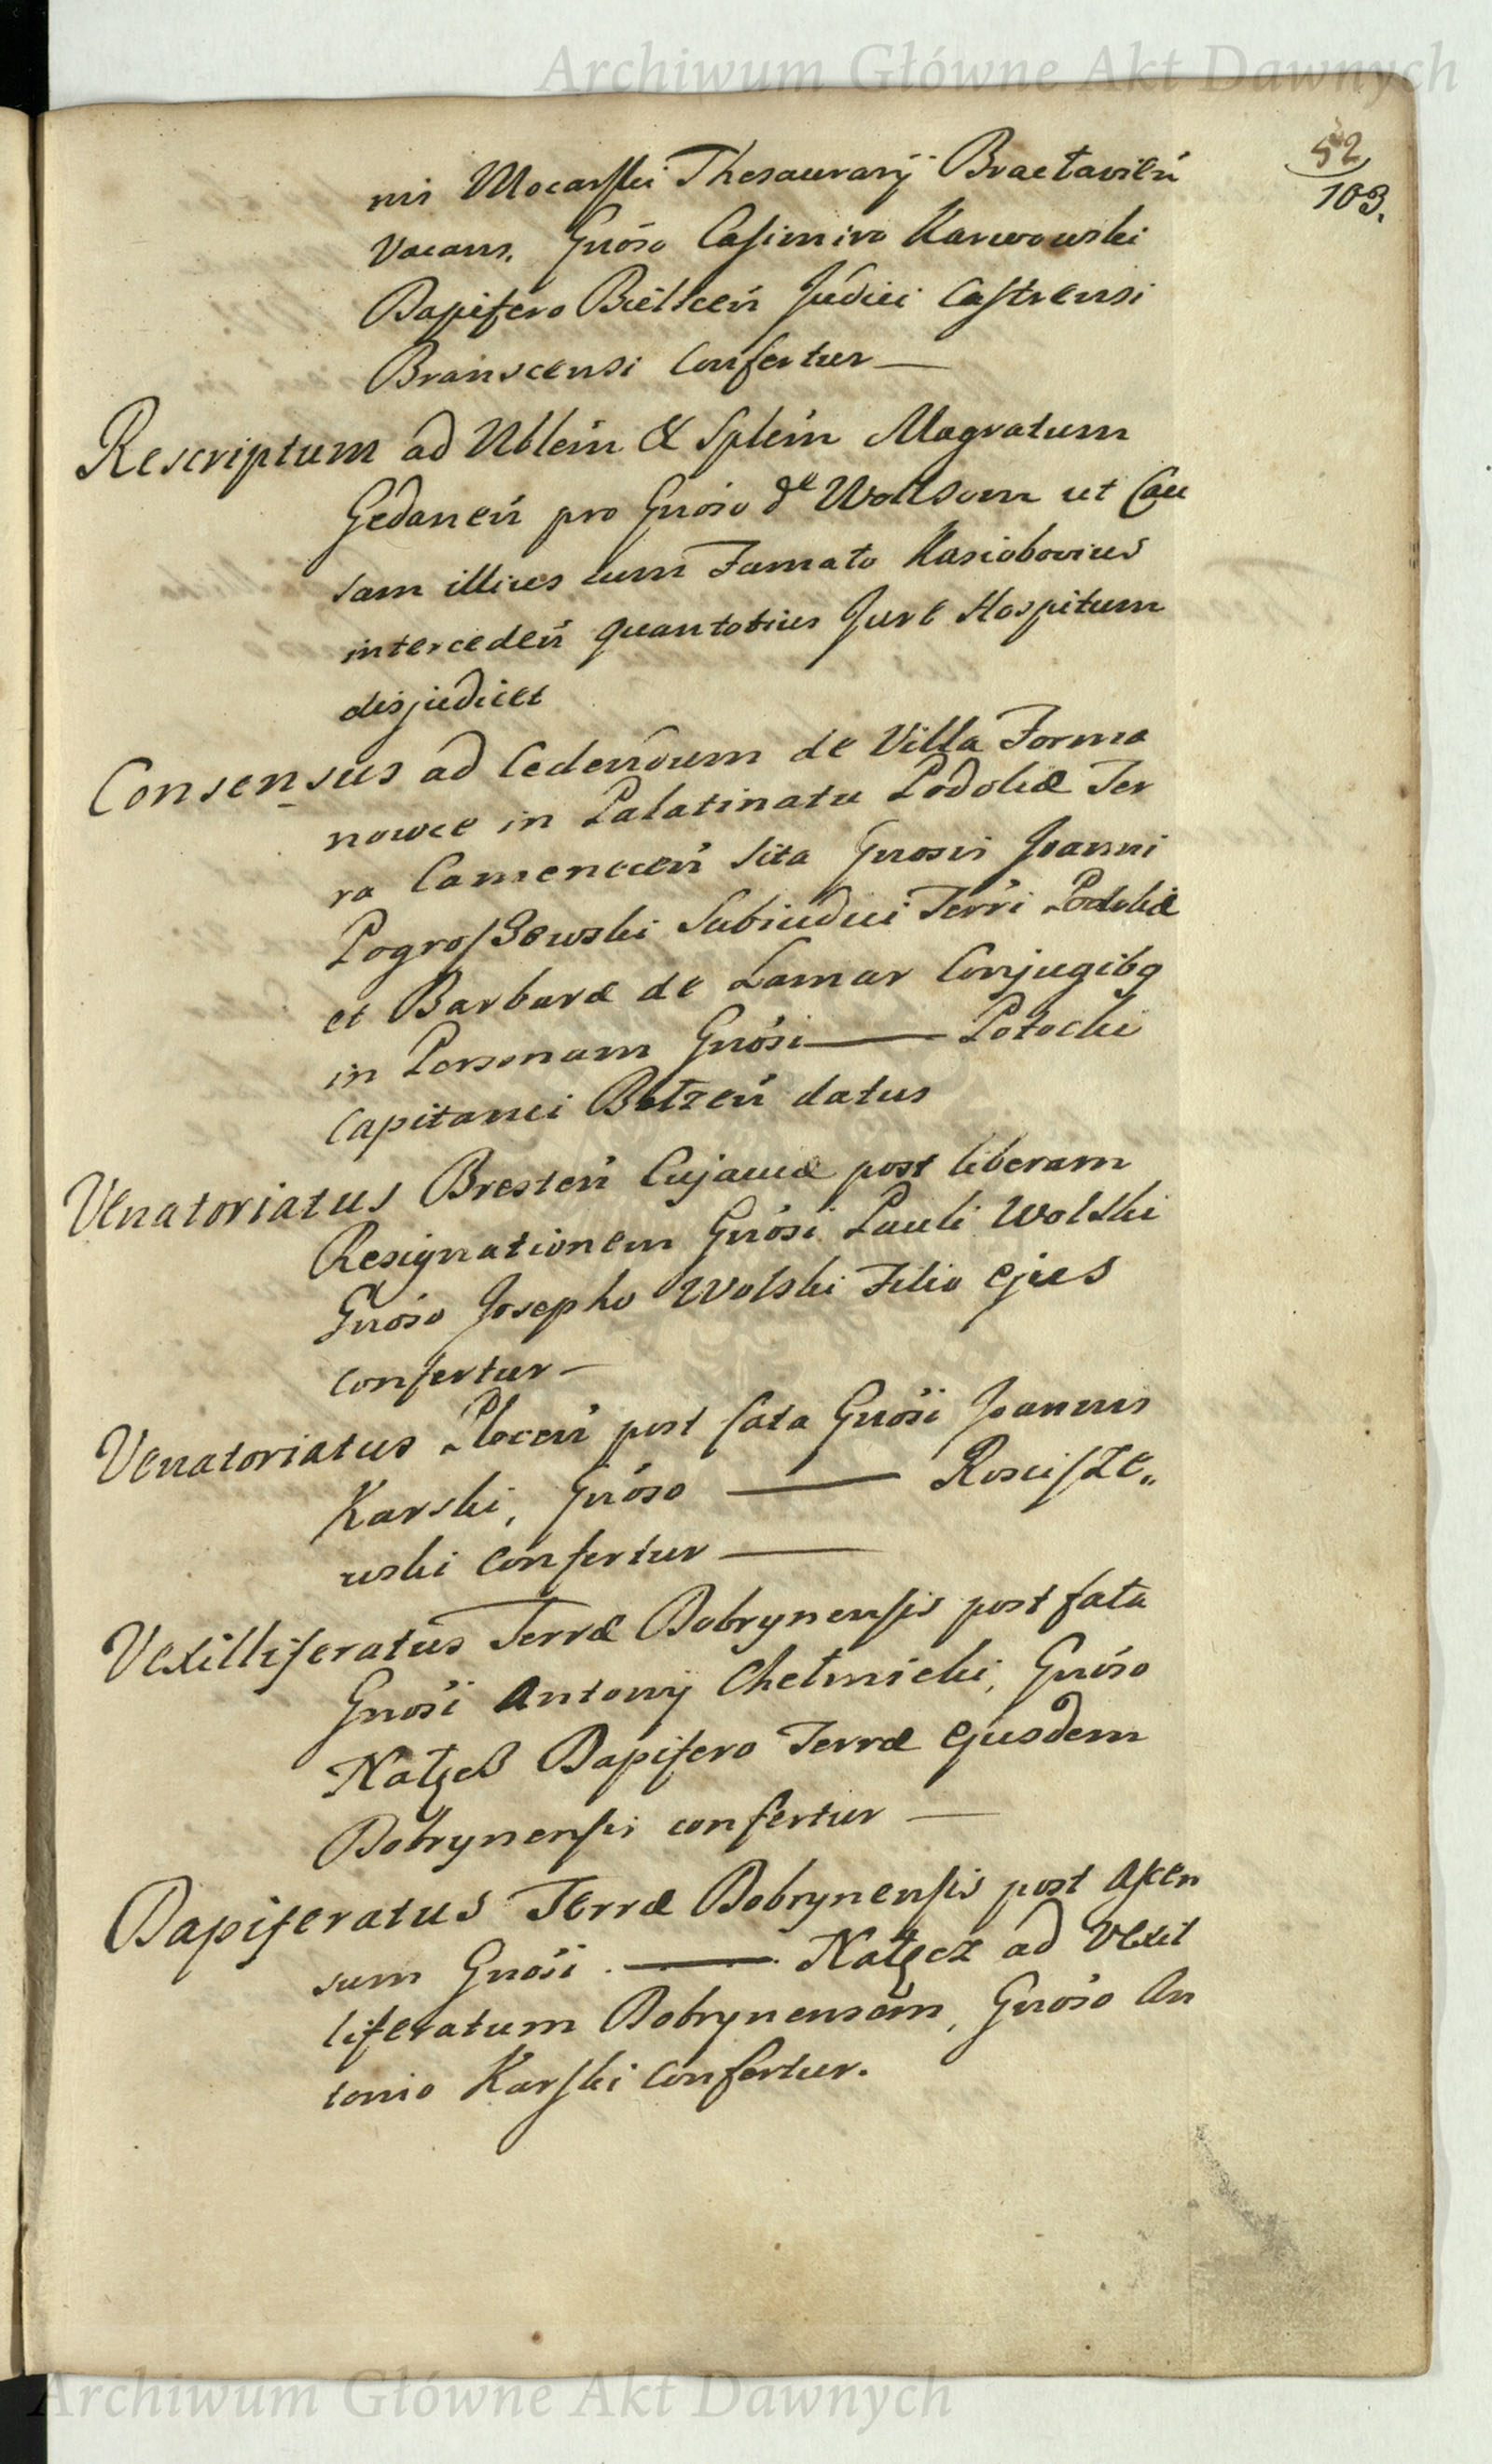 Archiwum Główne Akt Dawnych
52
103.
nis Mocarski Thesaurarij Bractavień
vacans, Gnóso Casimiro Karwowski
Dapifero Bielsceń Judici Castrensi
Branscensi Confertur —
Rescriptum ad Nblem & Splem Magratum
Gedaneń pro Gnóso de Wollson ut Cau
sam illius cum Famato Kasiobovius
intercedeń quantotius Jure Hospitum
disjudicet
Consensus ad Cedendum de Villa Forma
nowce in Palatinatu Podoliæ Ter
ra Cameneceń Sita Gnosis Joanni
Pogroszewski Subiudici Terri Podoliæ
et Barbaræ de Lamar Conjugibq
in Personam Gnósi — Potocki
Capitanei Bełzeń datus
Venatoriatus Bresteń Cujaviæ post liberam
Resignationem Gnósi Pauli Wolski
Gnóso Josepho Wolski Filio ejus
confertur —
Venatoriatus Ploceń post fata Gnósi Joannis
Karski, Gnóso — Rosciszę„
wski confertur —
Vexilliferatus Terræ Dobrynensis post fata
Gnósi Antonij Chełmicki, Gnóso
Nałęcz Dapifero Terræ ejusdem
Dobrynensis confertur —
Dapiferatus Terræ Dobrynensis post Ascen
sum Gnósi . — Nałęcz ad Vexil
liferatum Dobrynensem, Gnóso An
tonio Karski Confertur.
Archiwum Główne Akt Dawnych